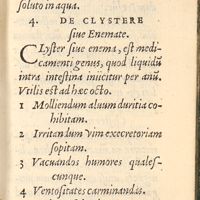 soluto in aqua.
4. DE CLYSTERE
siue Enemate.
CLyster siue enema, est medi-
camenti genus, quod liquidū
intra intestina iniicitur per anū.
Vtilis est ad hæc octo.
1 Molliendum aluum duritia co-
hibitam.
2 Irritandum vim excretoriam
sopitam.
3 Vacuandos humores quales-
cunque.
4 Ventositates carminandas.